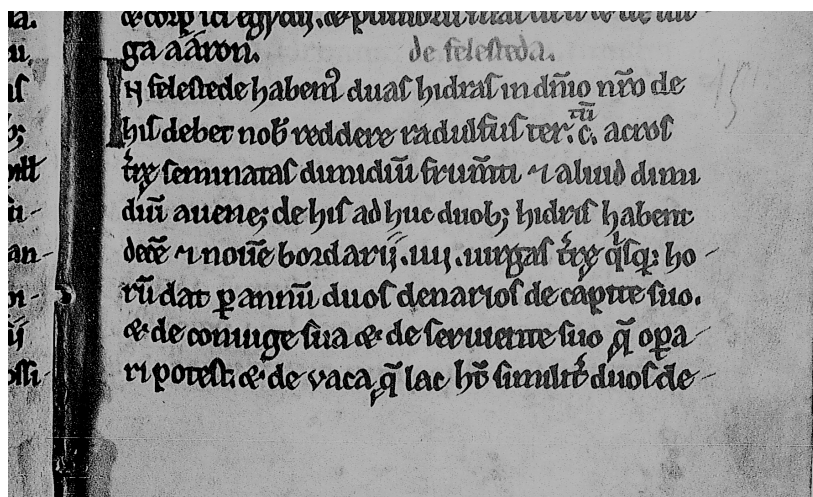 ga aaron. de felesteda.
In felestede habem⁹ duas hidras in dn̄io nr̄o de
his debet nob̄ reddere radulfus ter. c. acros
tr̄e seminatas dimidiū frum̄ti ⁊ aliud dimi
diū auene; de his ad huc duob; hidris habent
decē ⁊ nouē bordarij. iiij. uirgas tr̄e q̄sq; ho-
rū dat ꝑ annū duos denarios de capite suo.
& de coniuge sua & de seruiente suo q̄ oꝑa-
ri potest. & de vaca q̄ lac hб̄ similit̄ duos de-